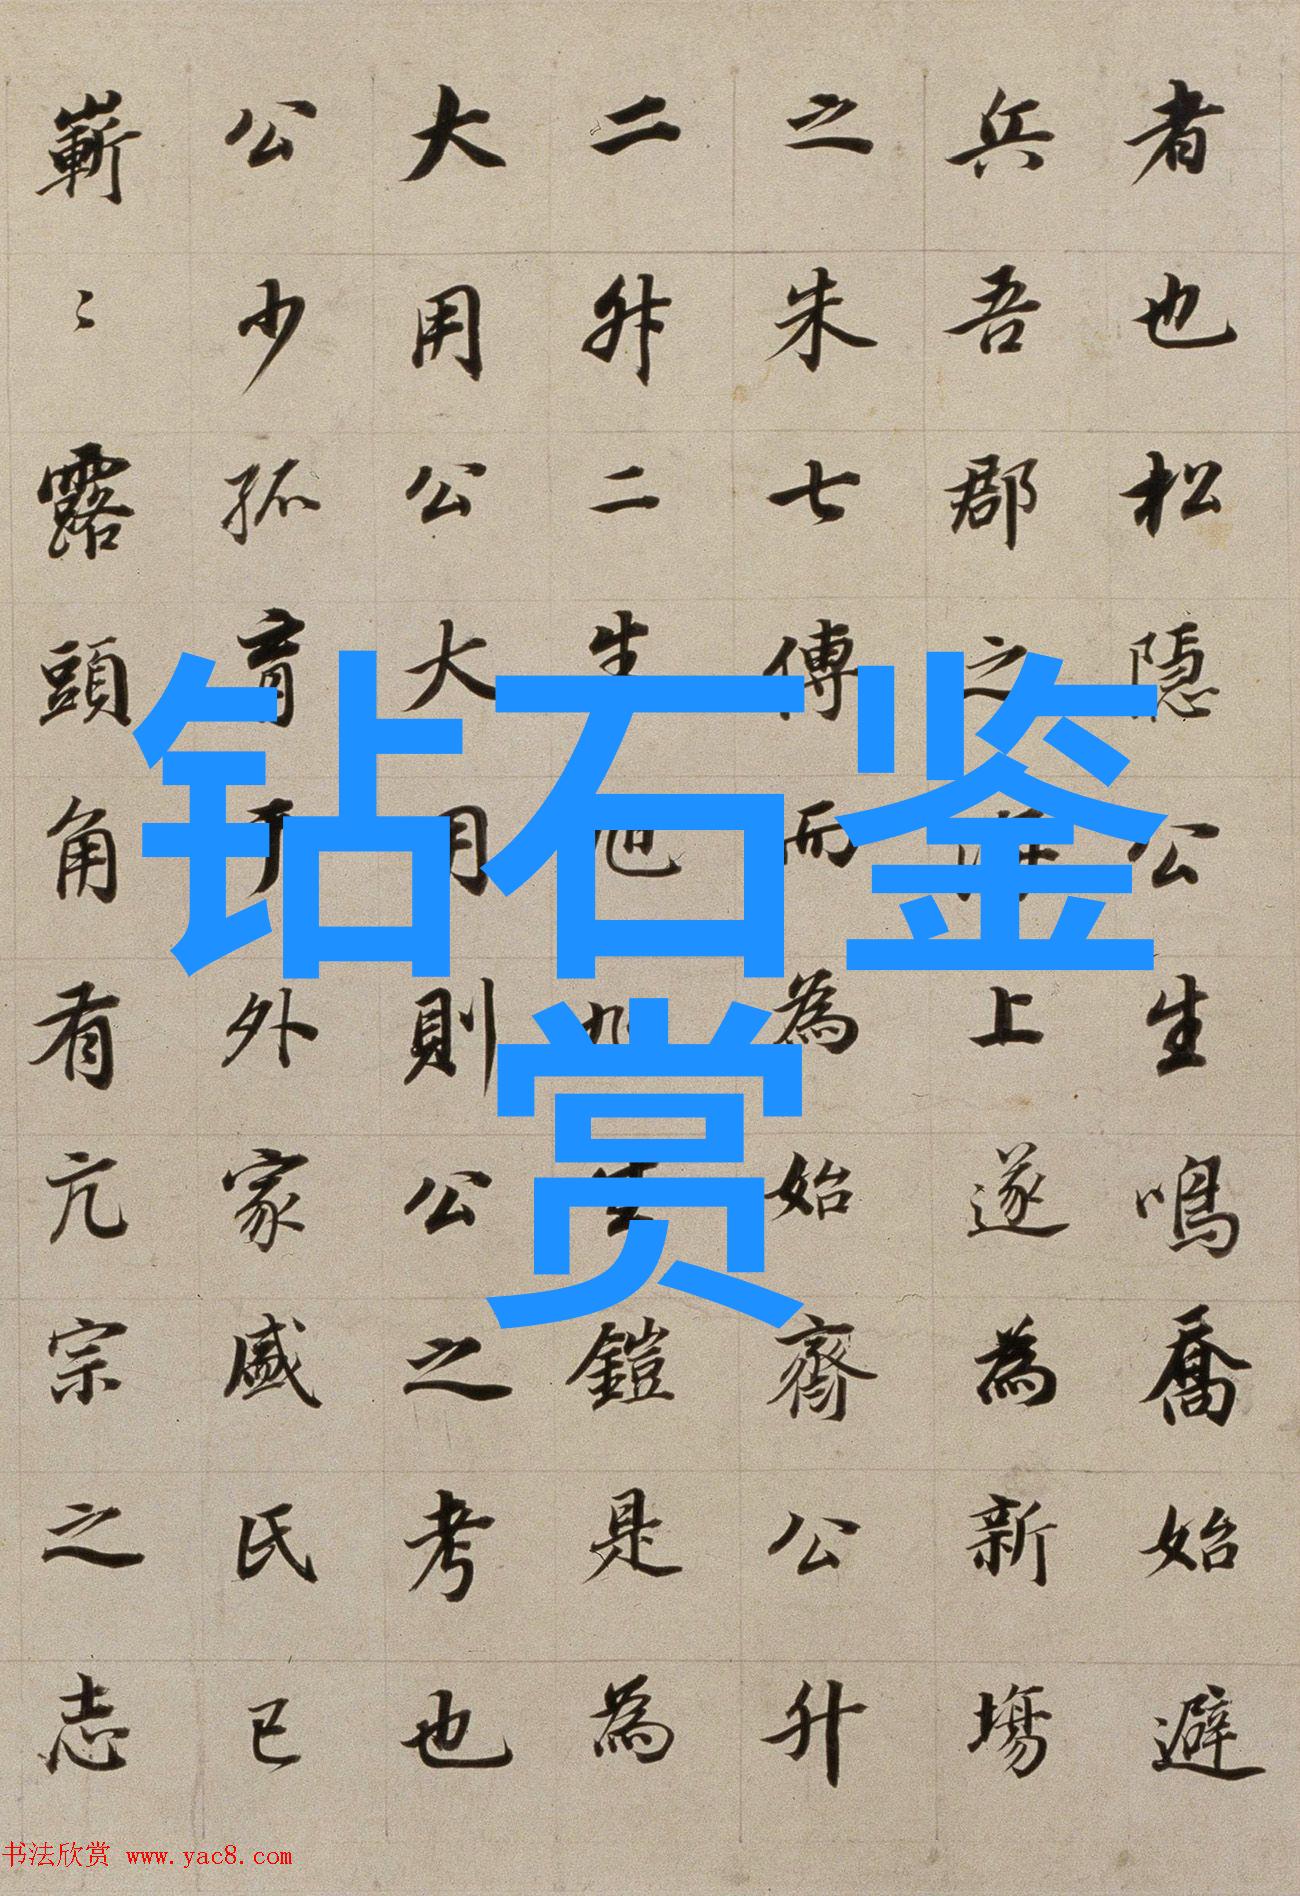 钻石鉴
赏
者也松隱公生鳴喬始避
兵吾郡之海上遂為新場
之朱七傳而為始齋公升
二升二生旭旭生鎧是為
大用公大用則公之考也
公少孤育于外家戚氏已
嶄々露頭角有亢宗之志
书法欣赏 www.yac8.com